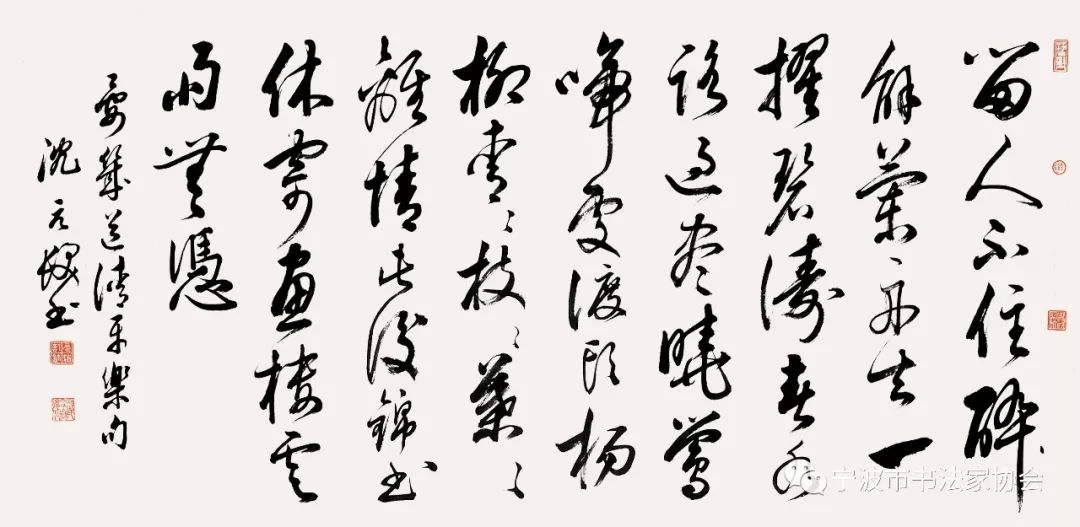 留人不住醉
解蘭舟去一
擢碧濤春水
路過盡曉鶯
啼處渡頭楊
柳青〻枝〻葉〻
離情此後錦書
休寄畫樓雲
雨無憑
晏幾道清平樂句
沈元書
宁波市书法家协会